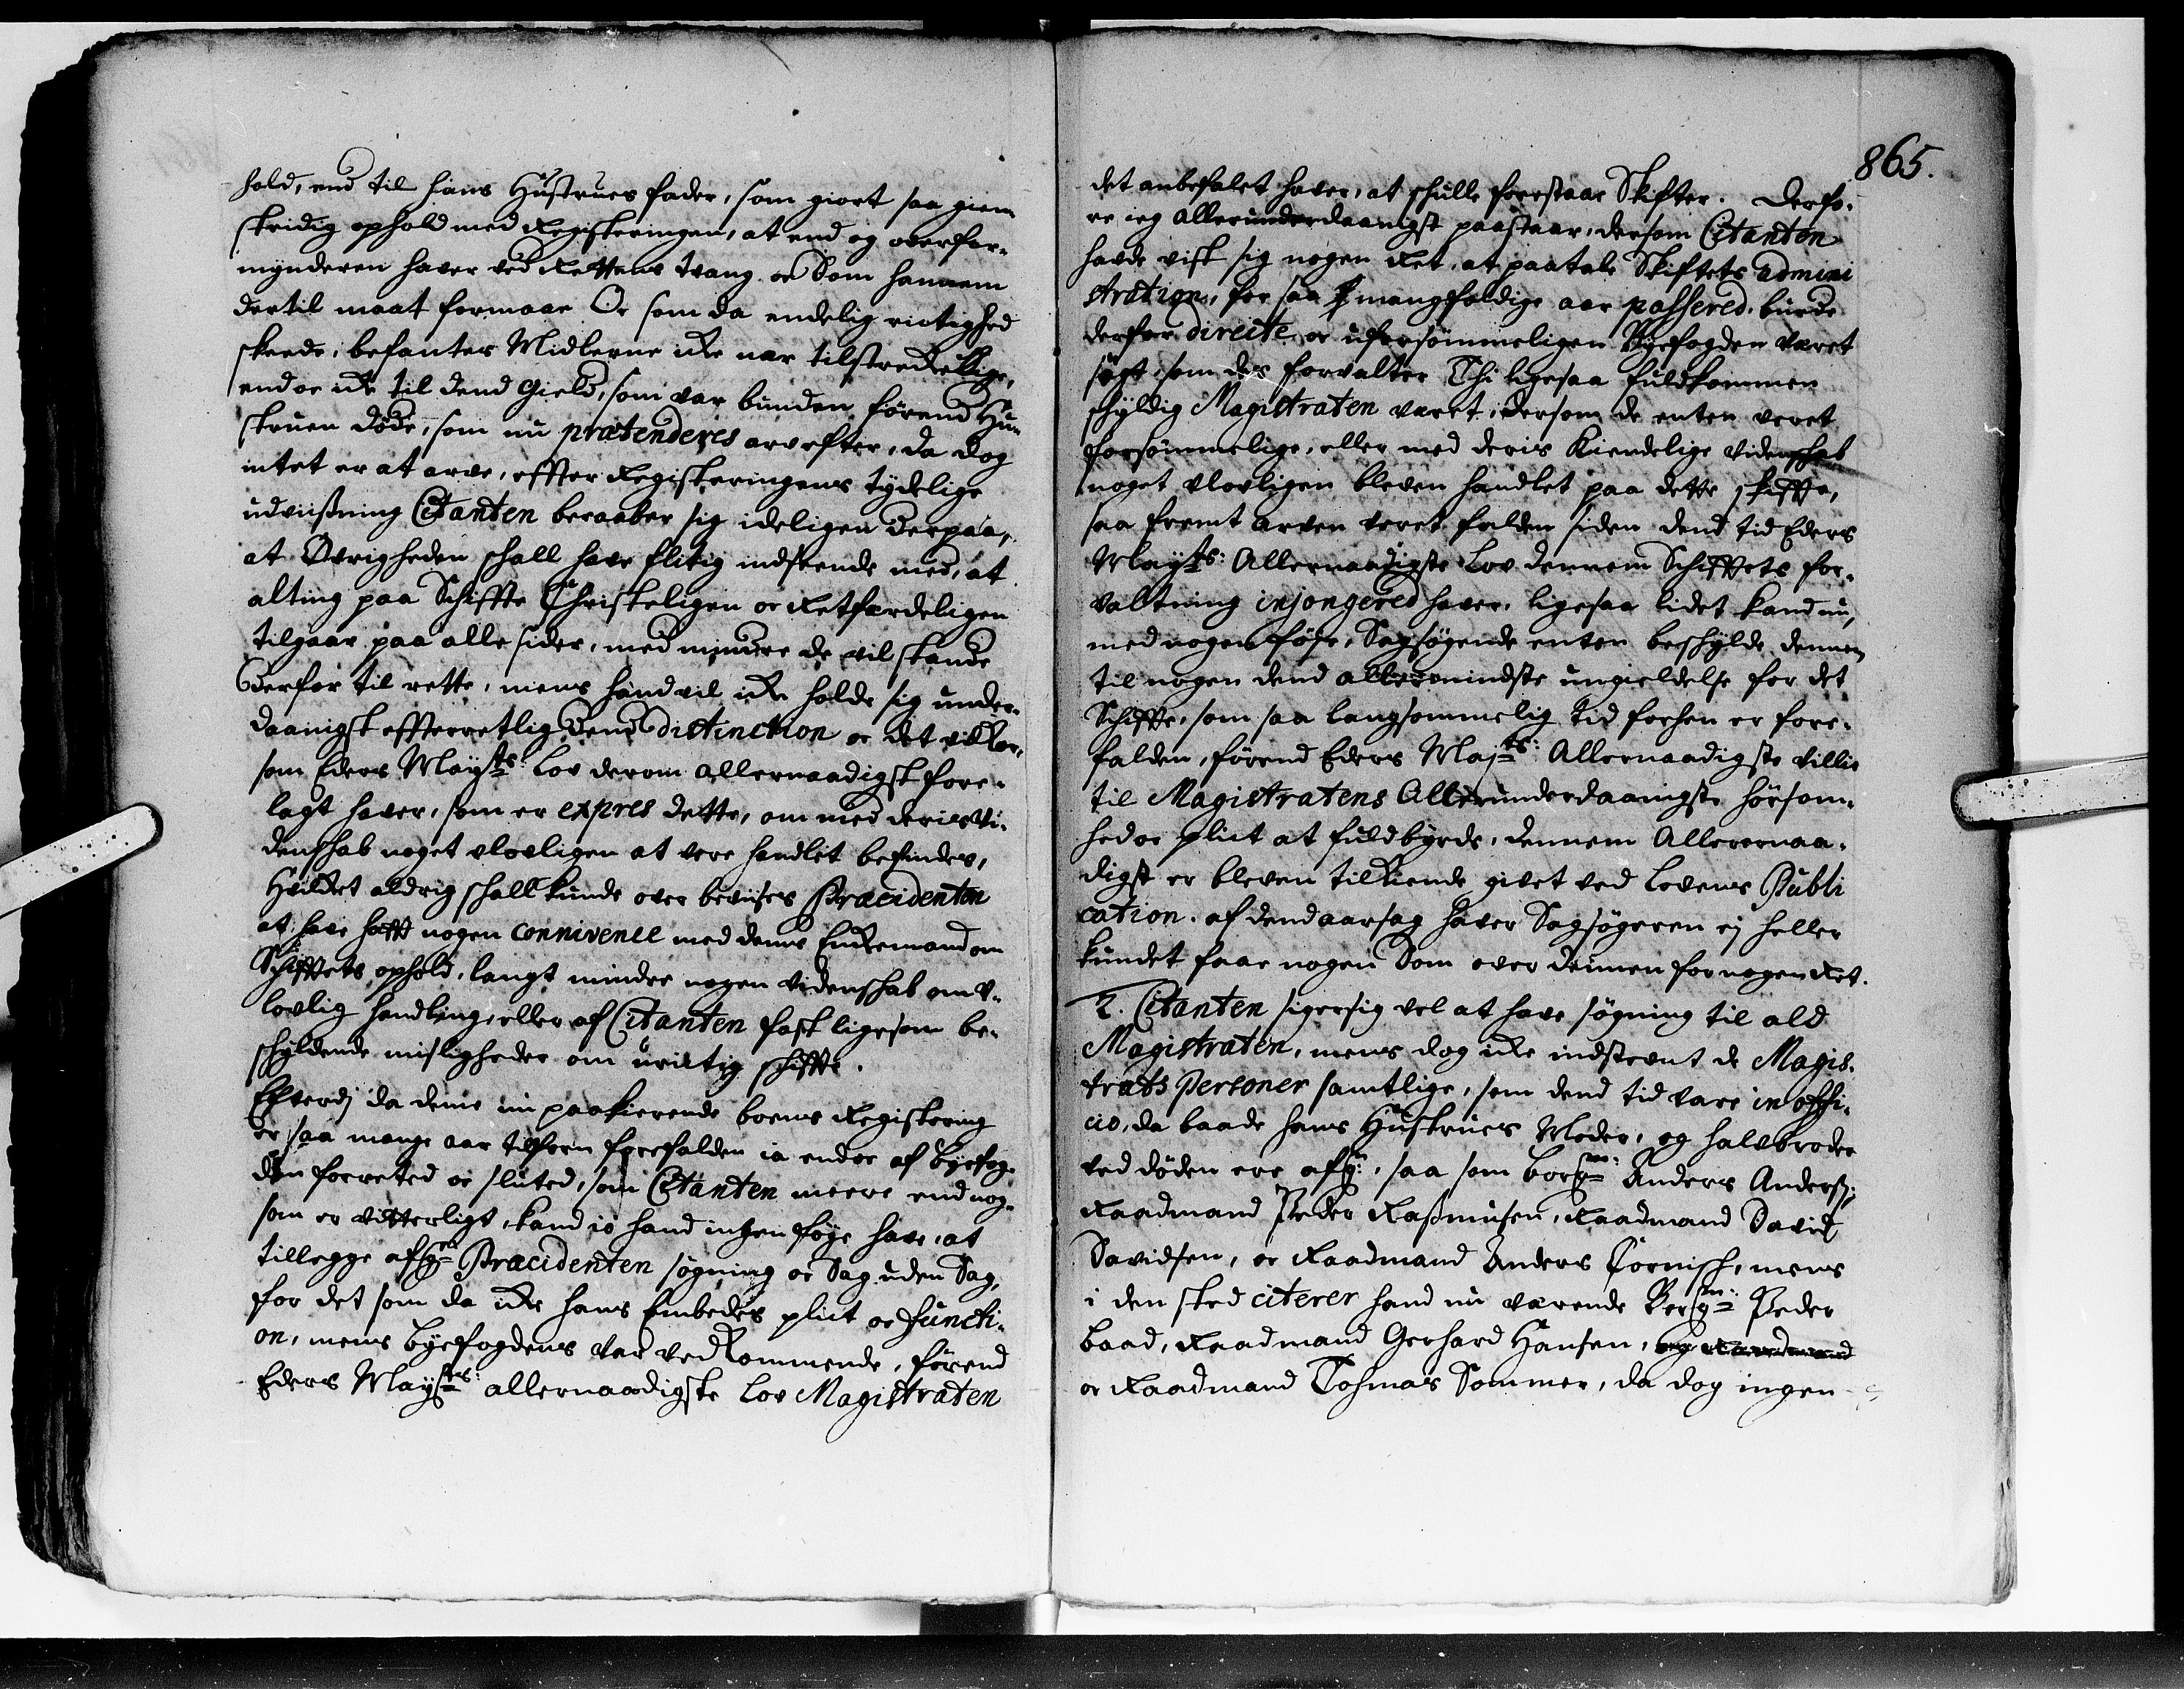 hold, end til hans Hustrues fader, som giort saa gien
stridig ophold med Registeringen, at end og overfor-
mynderen haver ved Rettens tvang oc Dom hannem
dertil maat formaae Oc som da endelig rictighed
skeede, befantes Midlerne icke nær tilstreckellige,
end oc icke til dend Gield, som var bunden førend Hu-
struen døde, som nu prætenderes arv efter, da dog
intet er at arve, effter Registeringens tydelige
udviißning Citanten beraaber sig ideligen derpaa,
at Øvrigheden schall have flitig indseende med, at
alting paa Schiffte Christeligen oc Retfærdeligen
tilgaar paa alle sider, med mindre de vil stande
derfor til rette, mens hand vil icke holde sig under-
daanigst effterretlig dend distinction oc det vilkor,
som Eders Mayts: Lov derom allernaadigst fore-
lagt haver, som er expres dette, om med deris Vi-
denschab noget ulovligen at vere handlet befindes,
Hvilket aldrig schall kunde over beviises Præcidenten
at have hafft nogen connivence med denne Enckemand om
Schifftets ophold, langt mindre nogen videnschab om u-
lovlig handling, eller af Citanten fast ligesom be-
schyldende misligheder om urictig schiffte.
Efterdj da denne nu paakierende boens Registering
er saa mange aar tilforn forefalden ia end oc af byefog-
den forreted oc sluted, som Citanten meere end nog-
som er vitterligt, kand io hand ingen føye have, at
tillegge afgn Præcidenten søgning oc Sag uden Sag,
for det som da icke hans Embedes plict oc functi-
on, mens byefogdens var vedkommende, førend
Eders Mayts: allernaadigste Lov Magistraten
865.
det anbefalet haver, at schulle forestaae Skifter. Derfo-
re ieg allerunderdaanigst paastaar, dersom Citanten
havde vist sig nogen Ret, at paatale Skiftets admini
stration, for saa mangfoldige aar passered, burde
derfor directe oc uforsømmeligen Byefogden været
søgt, som des forvalter Thi ligesaa fuldkommen
schyldig Magistraten været, dersom de enten veret
forsømmelige, eller med deris kiendelige videnschab
noget ulovligen bleven handlet paa dette skiffte,
saa fremt arven veret falden siden dend tid Eders
Mayts: Allernaadigste Lov dennem Schifftets for-
valtning injongered haver, ligesaa lidet kand nu,
med nogen føye, Sagsøgende enten beschylde dennem
til nogen dend allermindste ungieldelse for det
Schiffte, som saa langsommelig tid forhen er fore-
falden, førend Eders Mayts: Allernaadigste villie
til Magistratens Allerunderdaanigste hørsom-
hed oc plict at fuldbyrde, dennem Allernaa-
digst er bleven tilkiende givet ved Lovens Publi
cation. af dend aarsag haver Sagsøgeren ej heller
kundet faae nogen Dom over dennem for nogen Ret.
2. Citanten siger sig vel at have søgning til ald
Magistraten, mens dog icke indstevnt de Magis-
trats Personer samtlige, som dend tid vare in offi-
cio, da baade hans Hustrues Moder, og halvbroder
ved døden ere afg:, saa som borgm: Anders Anderß:,
Raadmand Peder Raßmusen, Raadmand David
Davidsen, oc Raadmand Anders Tornisch, mens
i den sted citerer hand nu værende Borgm: Peder
baad, Raadmand Gerhard Hansen,
oc Raadmand Tohmas Sommer, da dog ingen